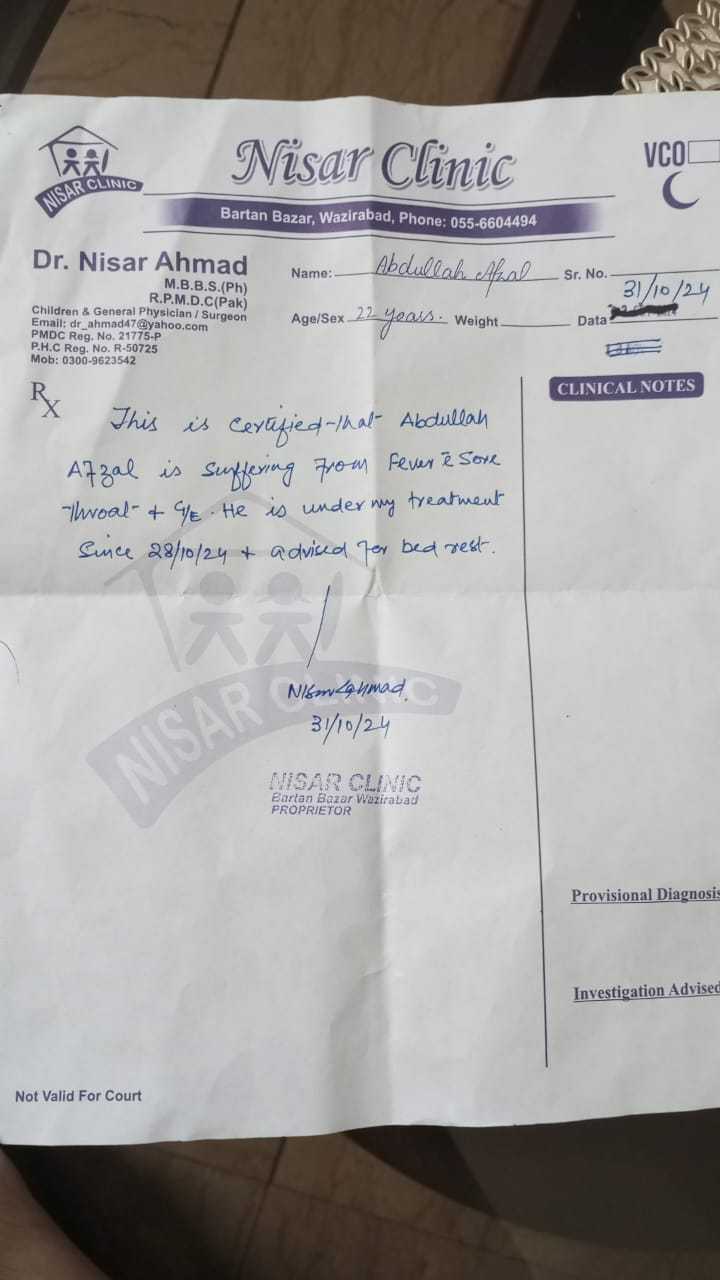 NISAR CLINIC
Nisar Clinic
VCO
Bartan Bazar, Wazirabad, Phone: 055-6604494
Dr. Nisar Ahmad
M.B.B.S.(Ph)
R.P.M.D.C(Pak)
Children & General Physician / Surgeon
Email: dr_ahmad47@yahoo.com
PMDC Reg. No. 21775-P
P.H.C Reg. No. R-50725
Mob: 0300-9623542
Name: Abdullah Afzal Sr. No.
Age/Sex 22 years. Weight Data 31/10/24
Rx
CLINICAL NOTES
This is certified that Abdullah
Afzal is suffering from Fever c̄ Sore
Throat + G/E. He is under my treatment
Since 28/10/24 + advised for bed rest.
NISAR CLINIC
Nisar Ahmad
31/10/24
NISAR CLINIC
Bartan Bazar Wazirabad
PROPRIETOR
Provisional Diagnosis
Investigation Advised
Not Valid For Court